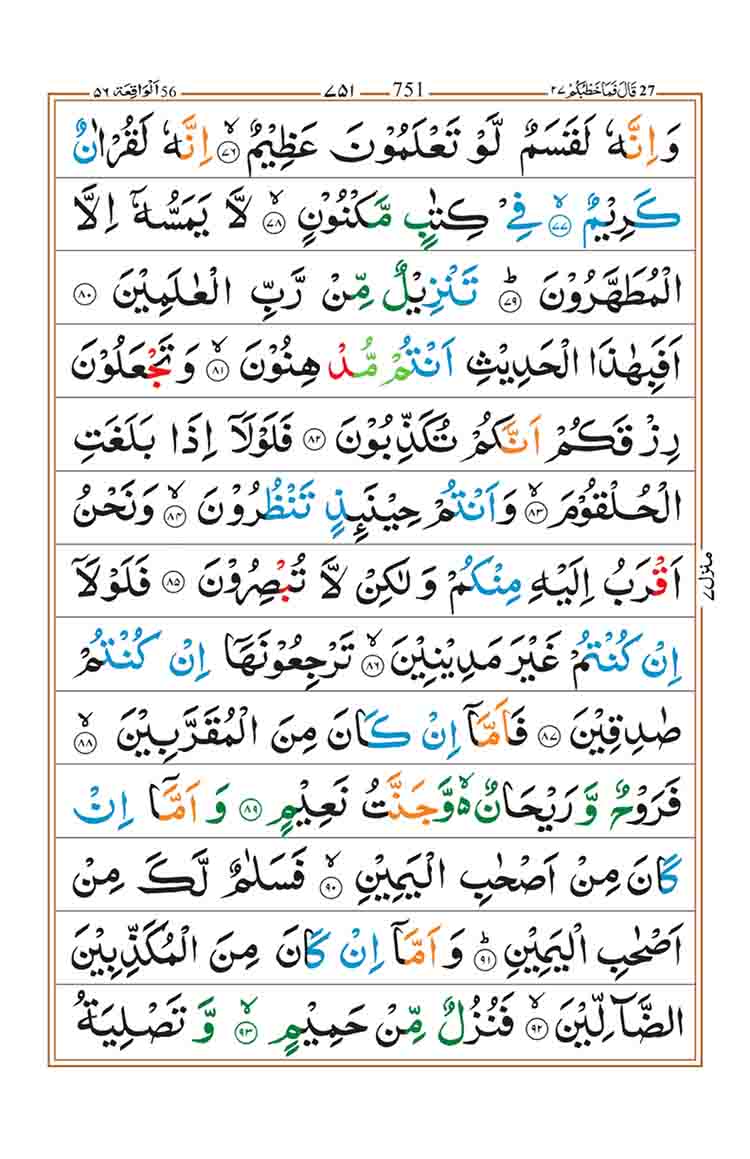 27 قَالَ فَمَا خَطْبُكُمْ ٢٧ 751 ٧٥١ 56 اَلْوَاقِعَة ٥٦
وَاِنَّهٗ لَقَسَمٌ لَّوْ تَعْلَمُوْنَ عَظِيْمٌ ۙ‏﴿۷۶﴾ اِنَّهٗ لَقُرْاٰنٌ
كَرِيْمٌ ۙ‏﴿۷۷﴾ فِىْ كِتٰبٍ مَّكْنُوْنٍ ۙ‏﴿۷۸﴾ لَّا يَمَسُّهٗۤ اِلَّا
الْمُطَهَّرُوْنَ ؕ‏﴿۷۹﴾ تَنْزِيْلٌ مِّنْ رَّبِّ الْعٰلَمِيْنَ ‏﴿۸۰﴾
اَفَبِهٰذَا الْحَدِيْثِ اَنْتُمْ مُّدْهِنُوْنَ ۙ‏﴿۸۱﴾ وَ تَجْعَلُوْنَ
رِزْقَكُمْ اَنَّكُمْ تُكَذِّبُوْنَ ‏﴿۸۲﴾ فَلَوْلَاۤ اِذَا بَلَغَتِ
الْحُلْقُوْمَ ۙ‏﴿۸۳﴾ وَاَنْتُمْ حِيْنَٮِٕذٍ تَنْظُرُوْنَ ۙ‏﴿۸۴﴾ وَنَحْنُ
اَقْرَبُ اِلَيْهِ مِنْكُمْ وَلٰكِنْ لَّا تُبْصِرُوْنَ ‏﴿۸۵﴾ فَلَوْلَاۤ
اِنْ كُنْتُمْ غَيْرَ مَدِيْنِيْنَ ۙ‏﴿۸۶﴾ تَرْجِعُوْنَهَاۤ اِنْ كُنْتُمْ
صٰدِقِيْنَ ‏﴿۸۷﴾ فَاَمَّاۤ اِنْ كَانَ مِنَ الْمُقَرَّبِيْنَ ۙ‏﴿۸۸﴾
فَرَوْحٌ وَّرَيْحَانٌ ۙ۬ وَّجَنَّتُ نَعِيْمٍ ‏﴿۸۹﴾ وَ اَمَّاۤ اِنْ
كَانَ مِنْ اَصْحٰبِ الْيَمِيْنِ ۙ‏﴿۹۰﴾ فَسَلٰمٌ لَّكَ مِنْ
اَصْحٰبِ الْيَمِيْنِ ؕ‏﴿۹۱﴾ وَ اَمَّاۤ اِنْ كَانَ مِنَ الْمُكَذِّبِيْنَ
الضَّآلِّيْنَ ۙ‏﴿۹۲﴾ فَنُزُلٌ مِّنْ حَمِيْمٍ ۙ‏﴿۹۳﴾ وَّ تَصْلِيَةُ
منزل ٧